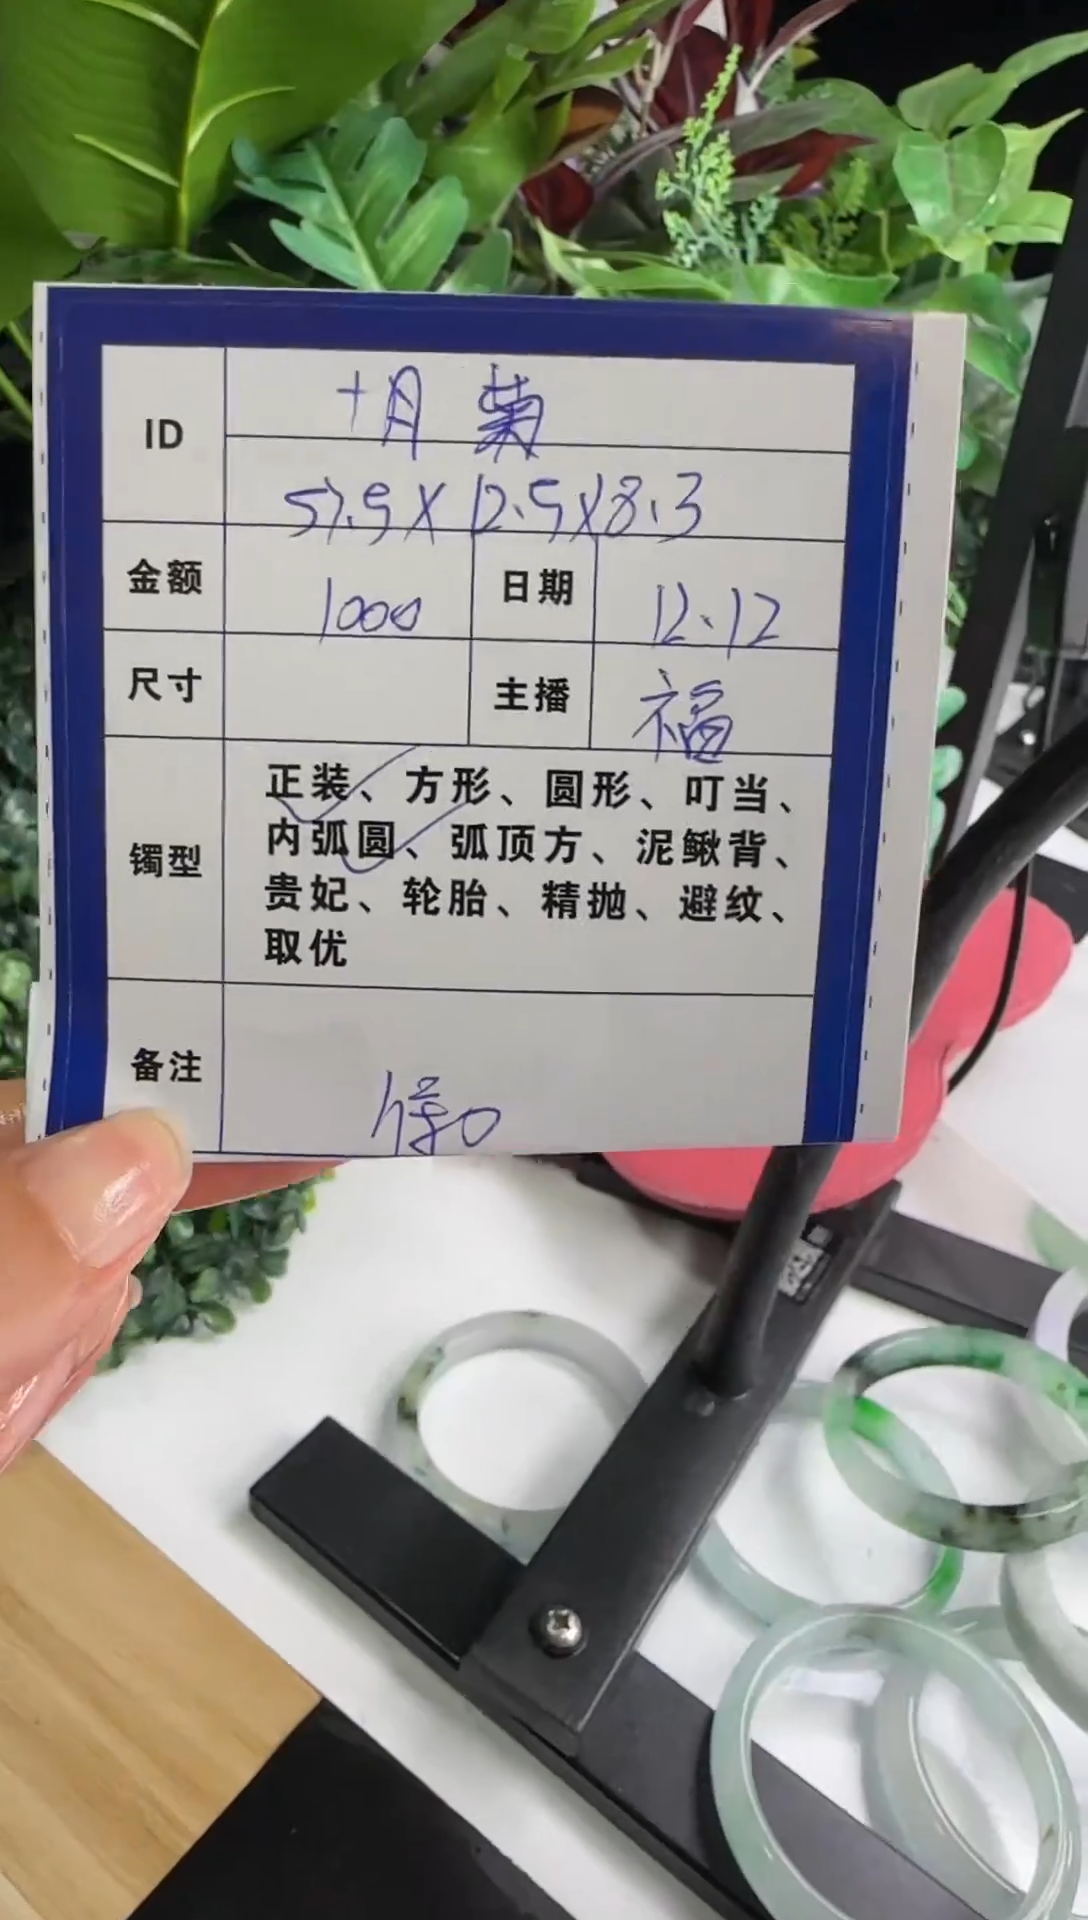 ID
十月菊
57.5X12.5X8.3
金额 1000 日期 12.12
尺寸 主播 福
镯型 正装、方形、圆形、叮当、
内弧圆、弧顶方、泥鳅背、
贵妃、轮胎、精抛、避纹、
取优
备注